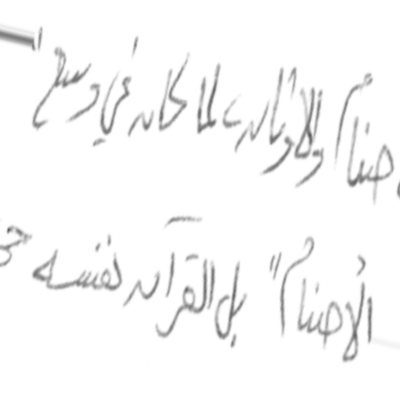 صنام والأوثان لما كان في وسع"
الأصنام" بل القرآن نفسه